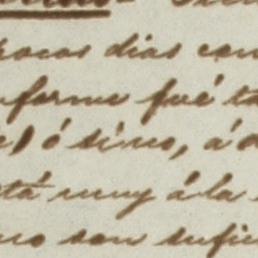 pocos dias con
nforme fué ta
e) ó sino, á d
stá muy á la
no son sufici